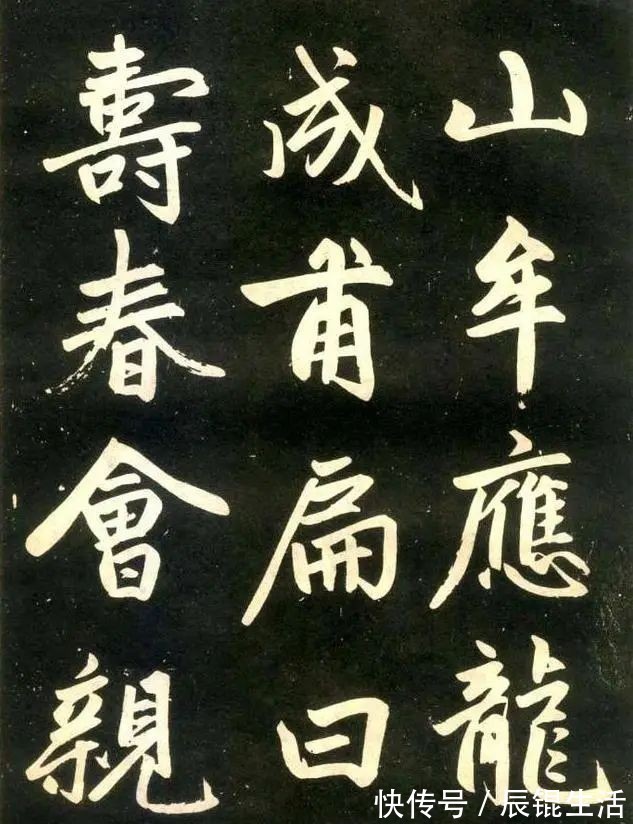 山牟應龍
成甫扁曰
壽春會親
快传号/辰锟生活